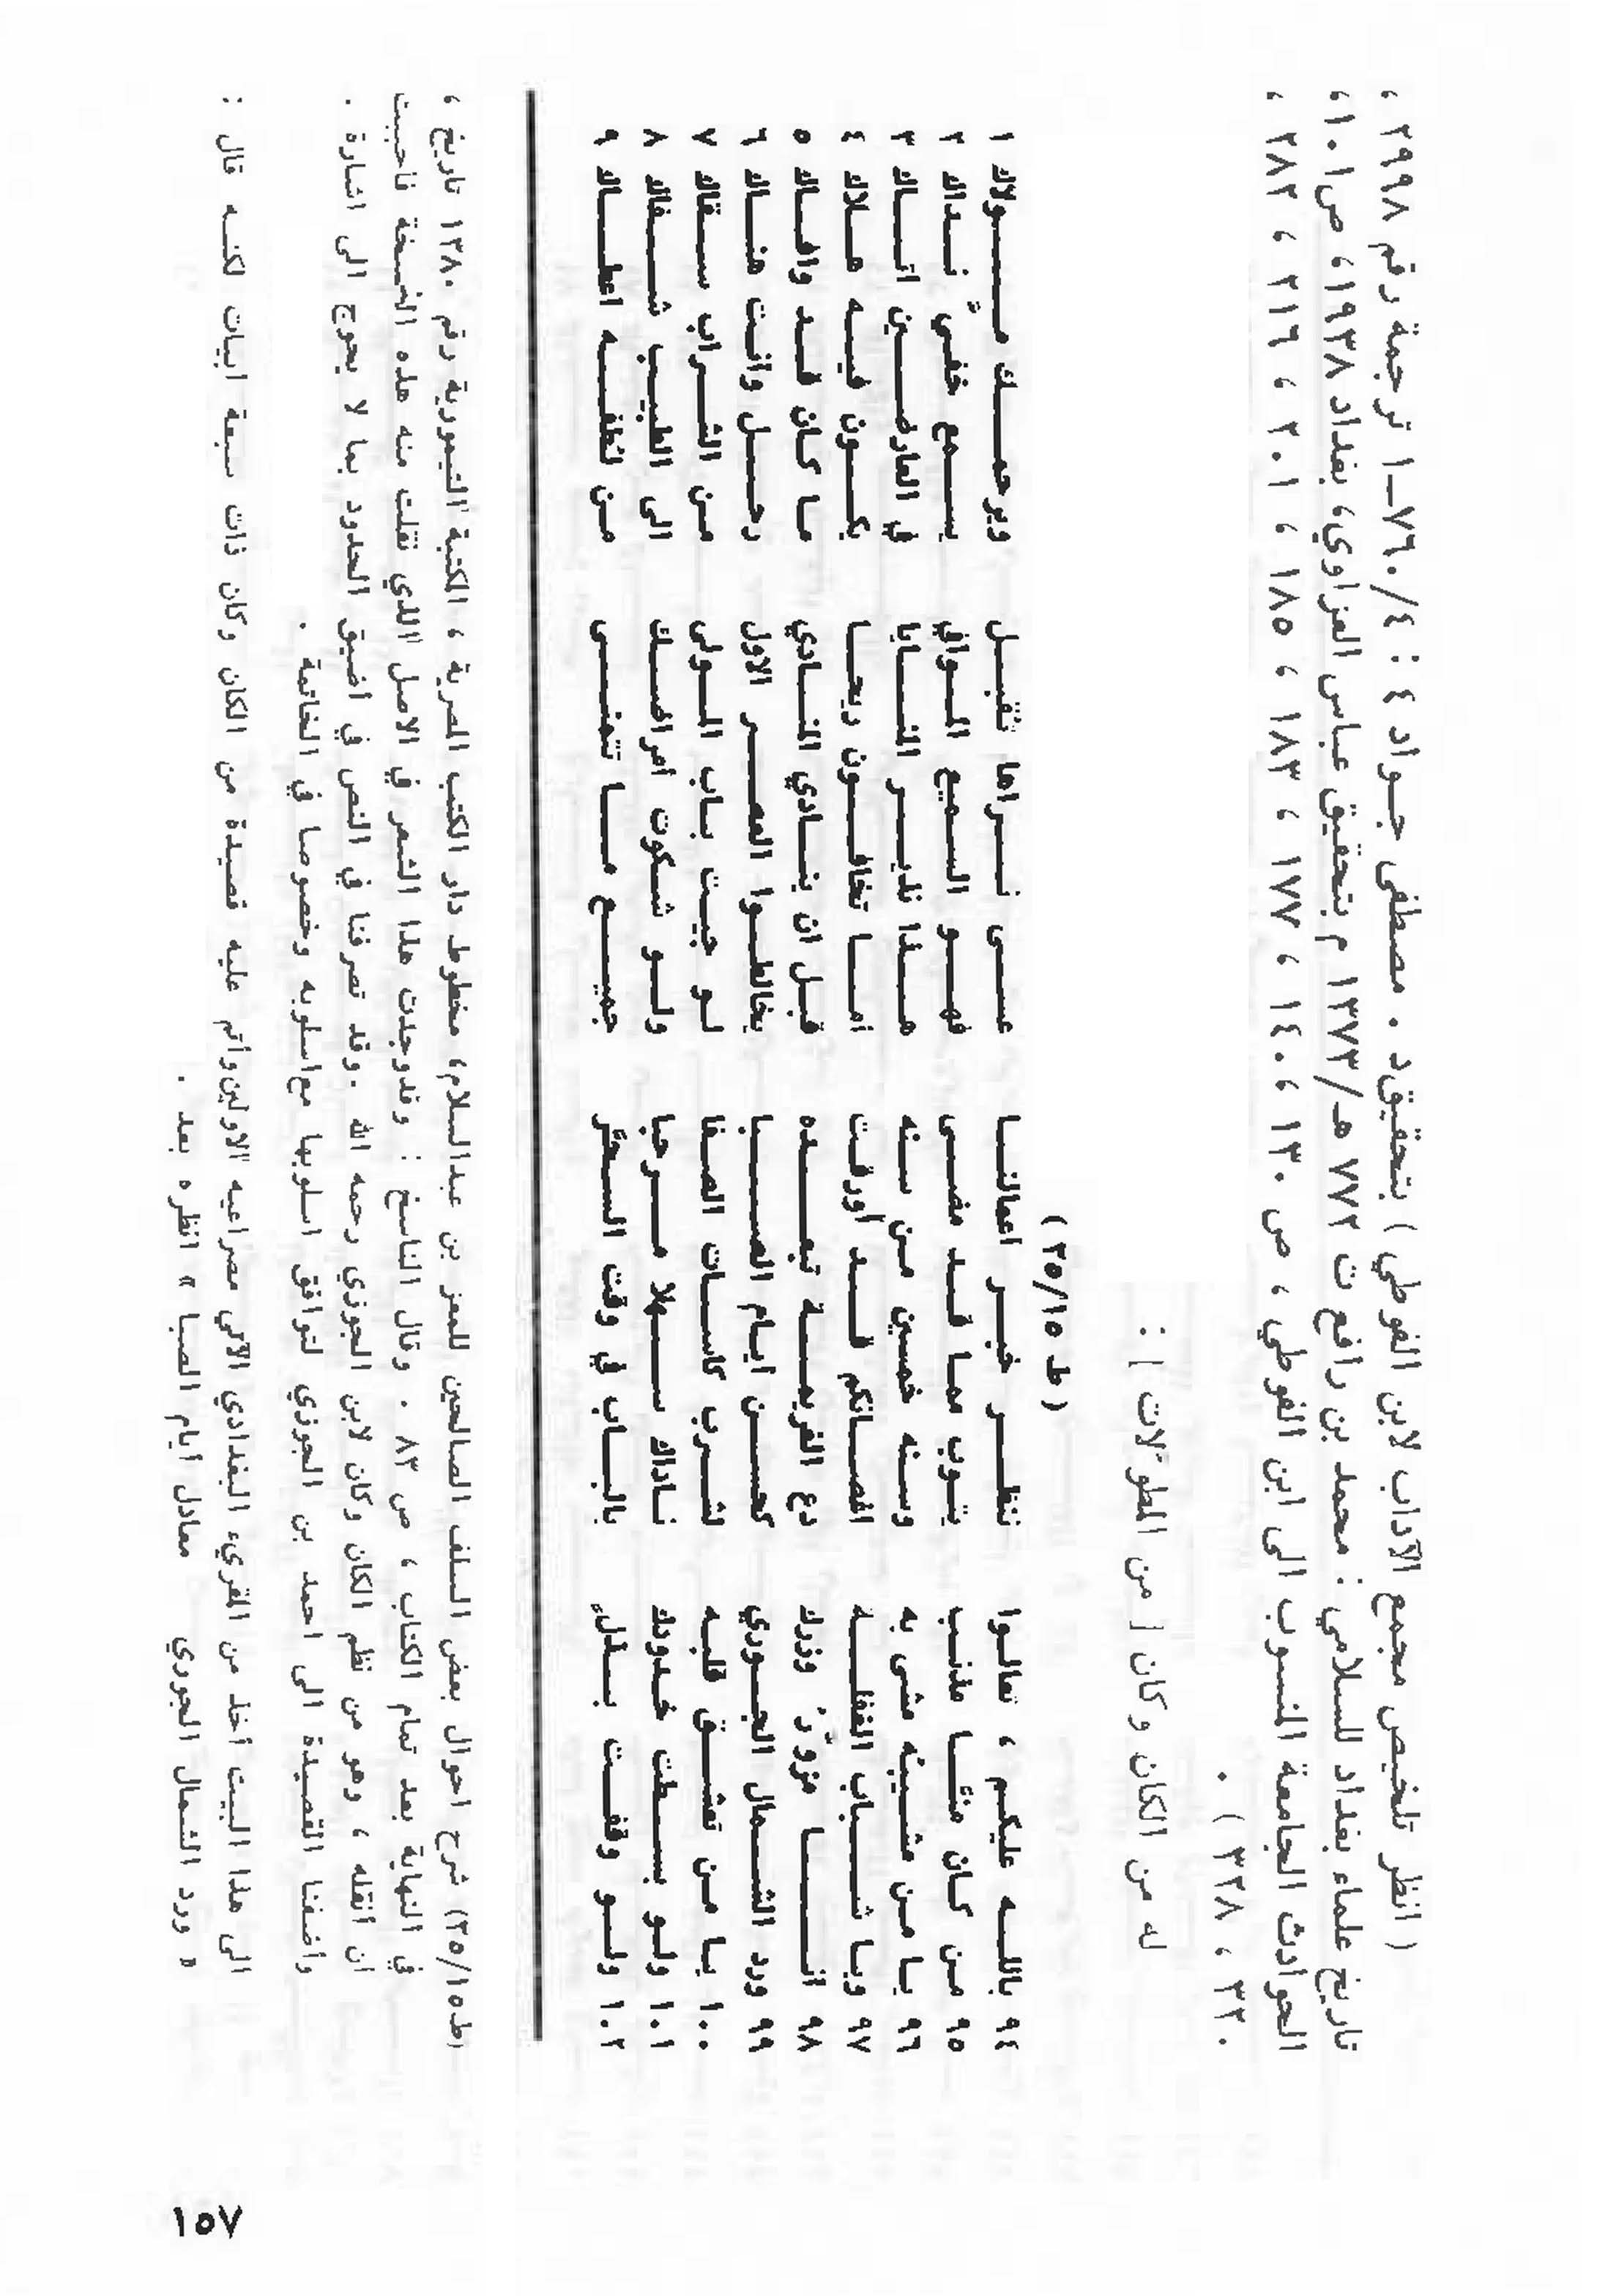 ( انظر تلخيص مجمع الآداب لابن الفوطي ) بتحقيق د . مصطفى جواد ٤ : ٤/٧٦٠ــ١ ترجمة رقم ٢٩٩٨ ،
تاريخ علماء بغداد للسلامي : محمد بن رافع ت ٧٧٢ هـ/١٣٧٣ م بتحقيق عباس العزاوي، بغداد ١٩٣٨، ص ١٠١،
الحوادث الجامعة المنسوب الى ابن الفوطي ، ص ١٣٠ ، ١٤٠ ، ١٧٧ ، ١٨٣ ، ١٨٥ ، ٢٠١ ، ٢١٦ ، ٢٨٢ ،
٣٢٠ ، ٣٢٨ ) .
له من الكان وكان [ من المطوّلات ] :
( ط ٣٥/١٥ )
٩٤ باللـه عليكم ، تعالوا ننظر خبر اعمالنا عسى نراها تُقبل ويرحمك مولاك ١
٩٥ من كان منّا مذنب يتوب مما قد مضى فهو السميع الموافي يسمع خفيّ نداك ٢
٩٦ يا من مشيبُه مشى به وسنه خمسين من سنه هذا نذير المنايا في العارضين اتاك ٣
٩٧ ويا شباب الغفلة اغصانكم قد أورقت أما تخافون ريحا يكون فيه هلاك ٤
٩٨ انا مزوّر وزرك دع العزيمة تبعده قبل ان ينادي المنادي ما كان قد وافاك ٥
٩٩ ورد الشمال الجوري كحسن ايام الصبا يخالطوا العمر الاول رحل وانت هناك ٦
١٠٠ يا من تعشق قلبه لشرب كاسات الصفا لو جيت باب المولى من الشراب سقاك ٧
١٠١ ولو بسطت خدودك ناداك سهلا مرحبا ولو شكوت أمراضك الى الطبيب شفاك ٨
١٠٢ ولو وقفت بذلٍ بالباب في وقت السحَر جميع ما تتمنى من لطفه اعطاك ٩
(ط ٣٥/١٥) شرح احوال بعض السلف الصالحين للمعز بن عبدالسلام، مخطوط دار الكتب المصرية ، المكتبة التيمورية رقم ١٣٨٠ تاريخ ،
في النهاية بعد تمام الكتاب ، ص ٨٣ . وقال الناسخ : وقدوجدت هذا الشعر في الاصل الذي نقلت منه هذه النسخة فأحببت
أن أنقله ، وهو من نظم الكان وكان لابن الجوزي رحمه الله .وقد تصرفنا في النص في أضيق الحدود بما لا يحوج الى اشارة .
وأضفنا القصيدة الى احمد بن الجوزي لتوافق اسلوبها مع اسلوبه وخصوصا في الخاتمة .
الى هذا البيت أخذ من المقريء البغدادي الآتي مصراعيه الاولين وأتم عليه قصيدة من الكان وكان ذات سبعة ابيات لكنه قال :
« ورد الشمال الجوري معادل أيام الصبا » انظره بعد .
١٥٧